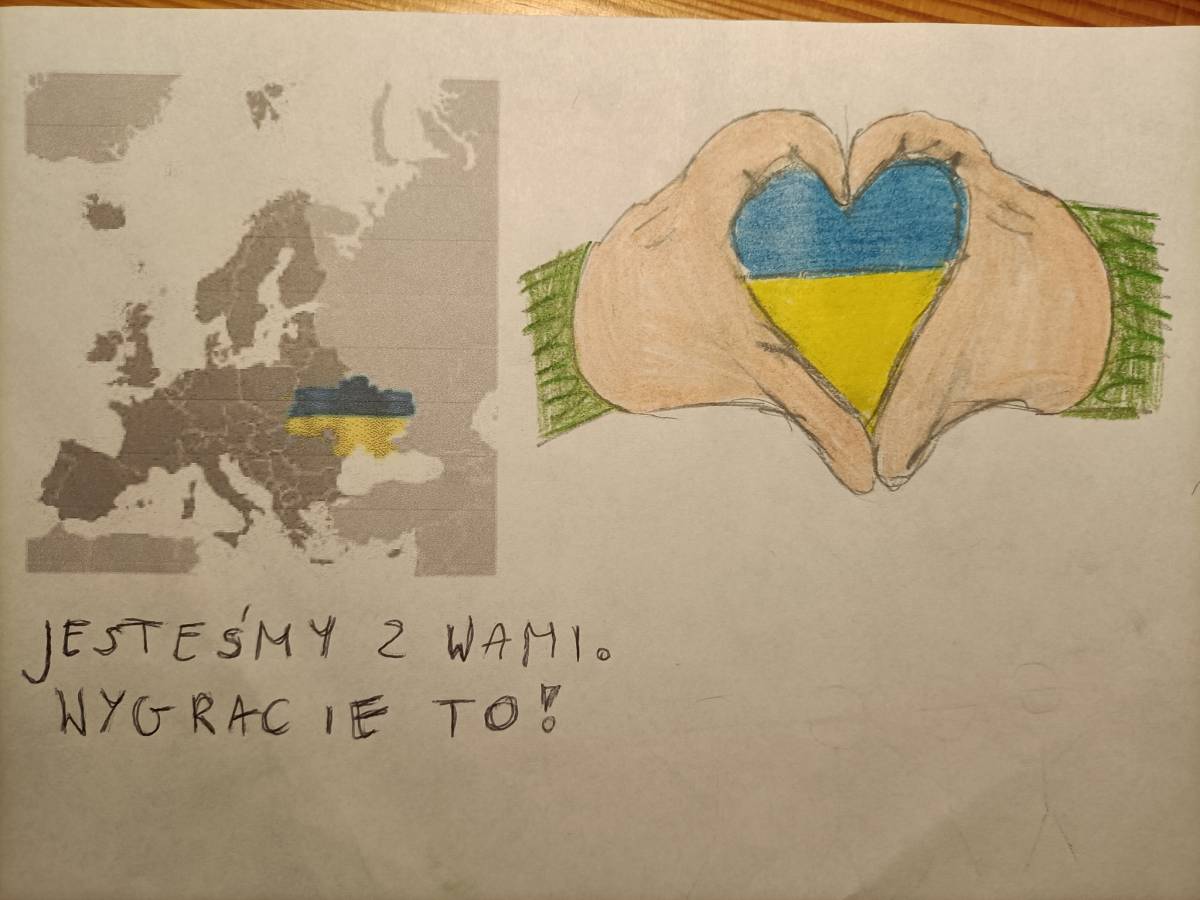 JESTEŚMY Z WAMI.
WYGRACIE TO!